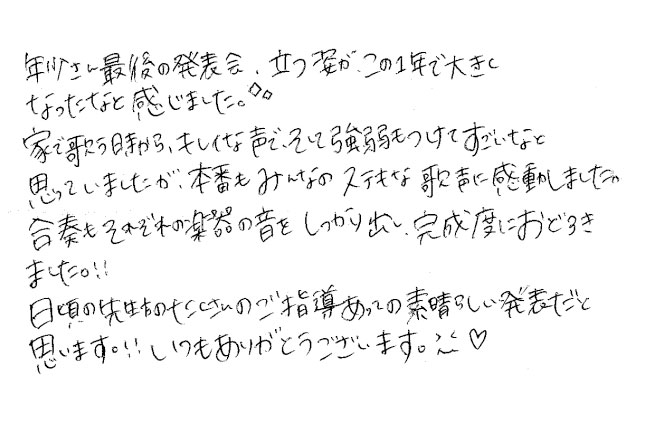 年少さん最後の発表会、立つ姿が、この1年で大きく
なったなと感じました。
家で歌う時から、キレイな声で、そして強弱もつけてすごいなと
思っていましたが、本番もみんなのステキな歌声に感動しました。
合奏もそれぞれの楽器の音をしっかり出し、完成度におどろき
ました。!!
日頃の先生方のたくさんのご指導あっての素晴らしい発表だと
思います。!! いつもありがとうございます。